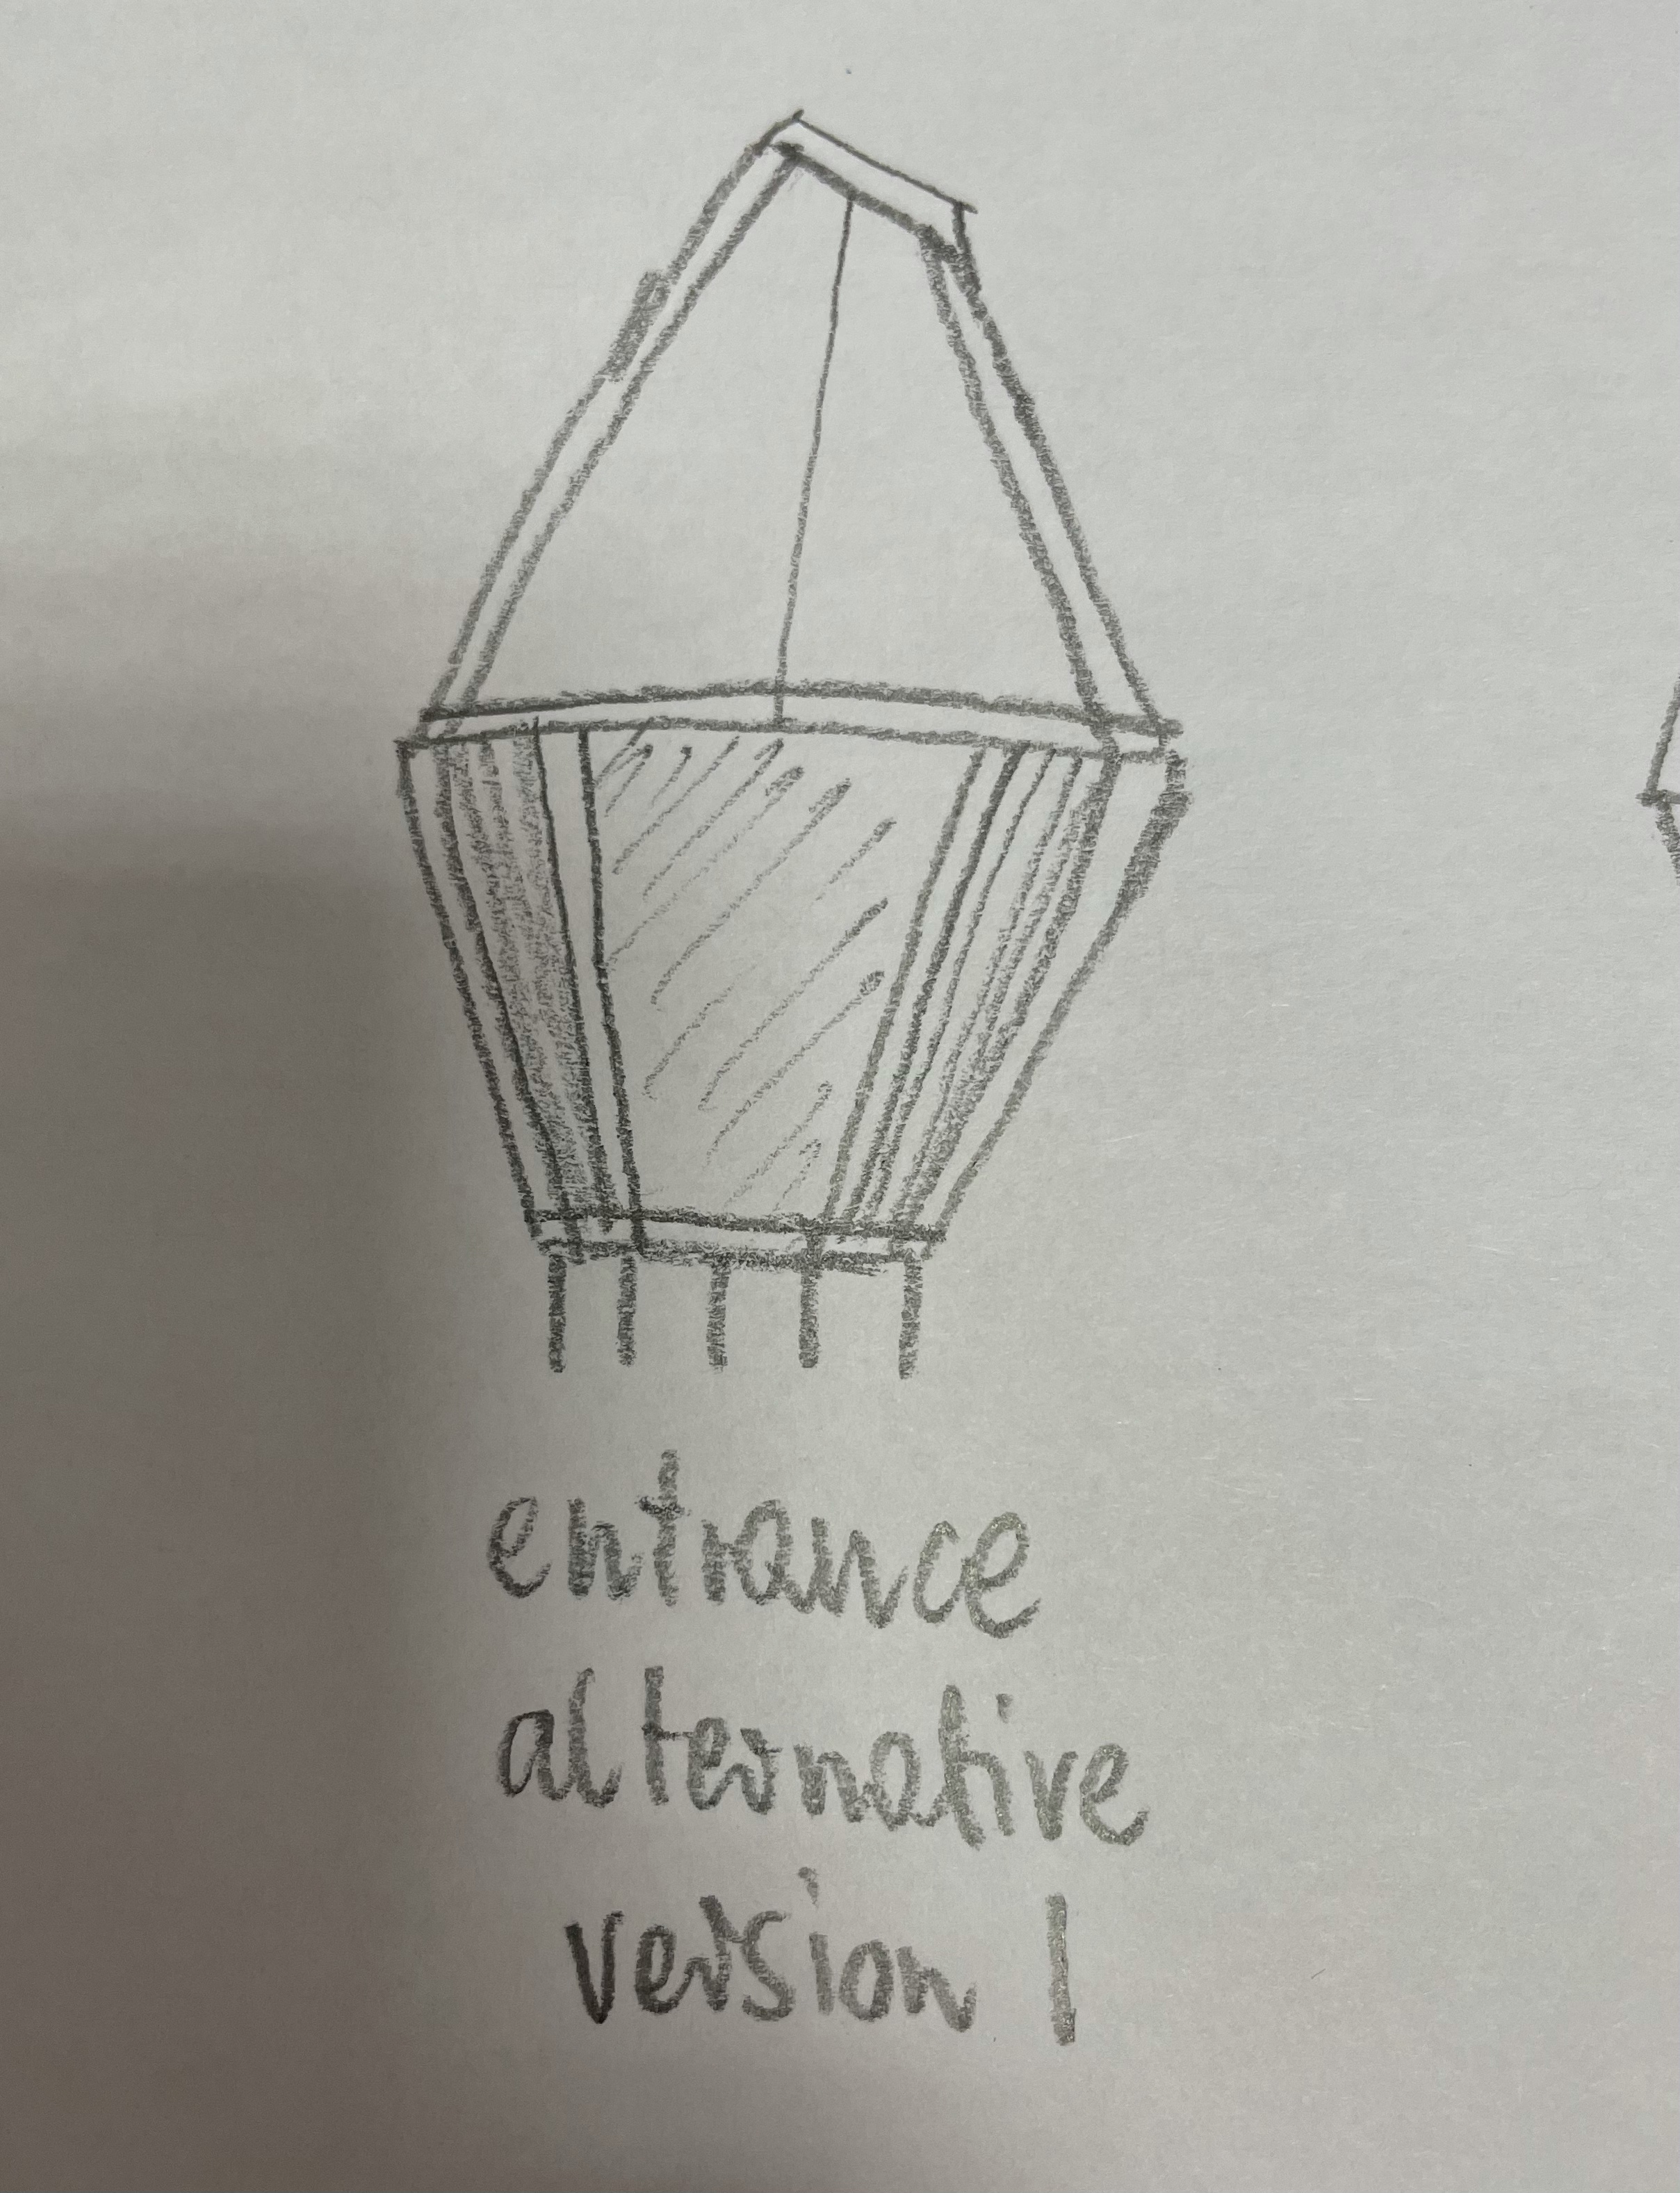 entrance
alternative
version 1